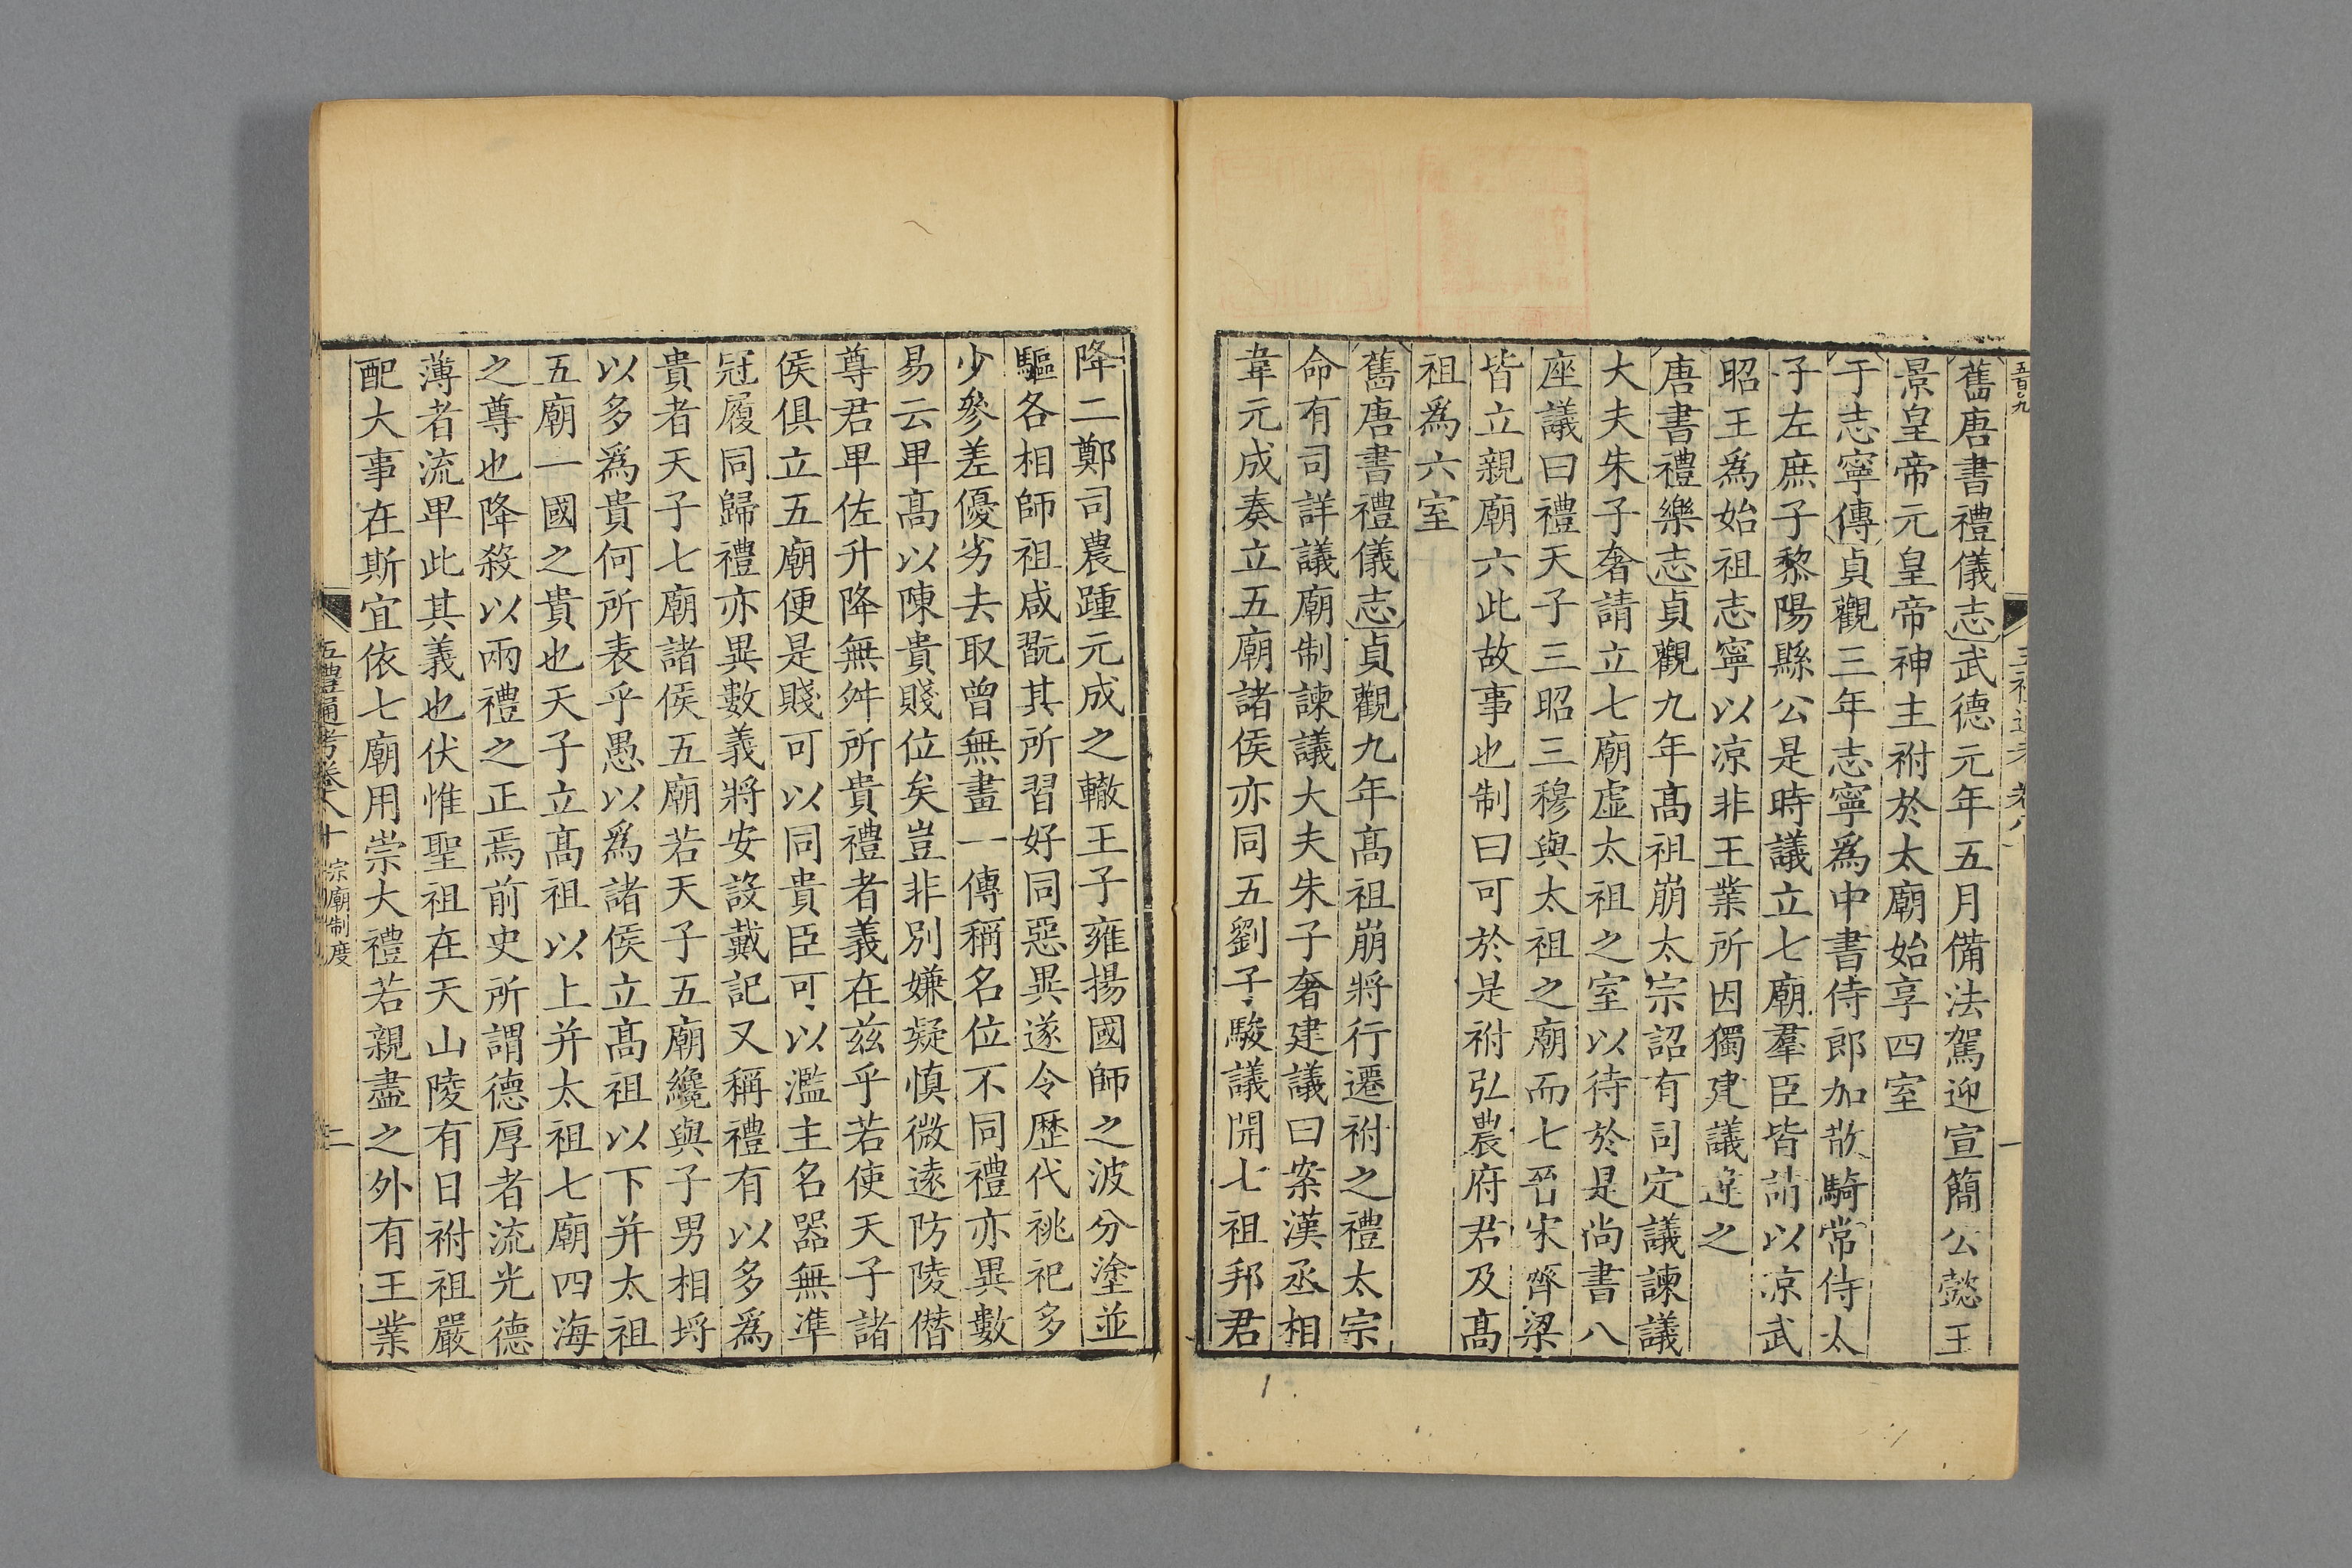 舊唐書禮儀志武德元年五月備法駕迎宣簡公懿王
景皇帝元皇帝神主祔於太廟始享四室
于志寧傳貞觀三年志寧爲中書侍郎加散騎常侍太
子左庶子黎陽縣公是時議立七廟羣臣皆請以凉武
昭王爲始祖志寧以凉非王業所因獨建議違之
唐書禮樂志貞觀九年高祖崩太宗詔有司定議諫議
大夫朱子奢請立七廟虛太祖之室以待於是尚書八
座議曰禮天子三昭三穆與太祖之廟而七晉宋齊梁
皆立親廟六此故事也制曰可於是祔弘農府君及高
祖爲六室
舊唐書禮儀志貞觀九年高祖崩將行遷祔之禮太宗
命有司詳議廟制諫議大夫朱子奢建議曰案漢丞相
韋元成奏立五廟諸侯亦同五劉子駿議開七祖邦君
降二鄭司農踵元成之轍王子雍揚國師之波分塗並
驅各相師祖咸翫其所習好同惡異遂令歷代祧祀多
少參差優劣去取曾無畫一傳稱名位不同禮亦異數
易云卑高以陳貴賤位矣豈非別嫌疑慎微遠防陵僭
尊君卑佐升降無舛所貴禮者義在茲乎若使天子諸
侯俱立五廟便是賤可以同貴臣可以濫主名器無準
冠履同歸禮亦異數義將安設戴記又稱禮有以多爲
貴者天子七廟諸侯五廟若天子五廟纔與子男相埒
以多爲貴何所表乎愚以爲諸侯立高祖以下并太祖
五廟一國之貴也天子立高祖以上并太祖七廟四海
之尊也降殺以兩禮之正焉前史所謂德厚者流光德
薄者流卑此其義也伏惟聖祖在天山陵有日祔祖嚴
配大事在斯宜依七廟用崇大禮若親盡之外有王業
五禮通考卷八十 宗廟制度 二